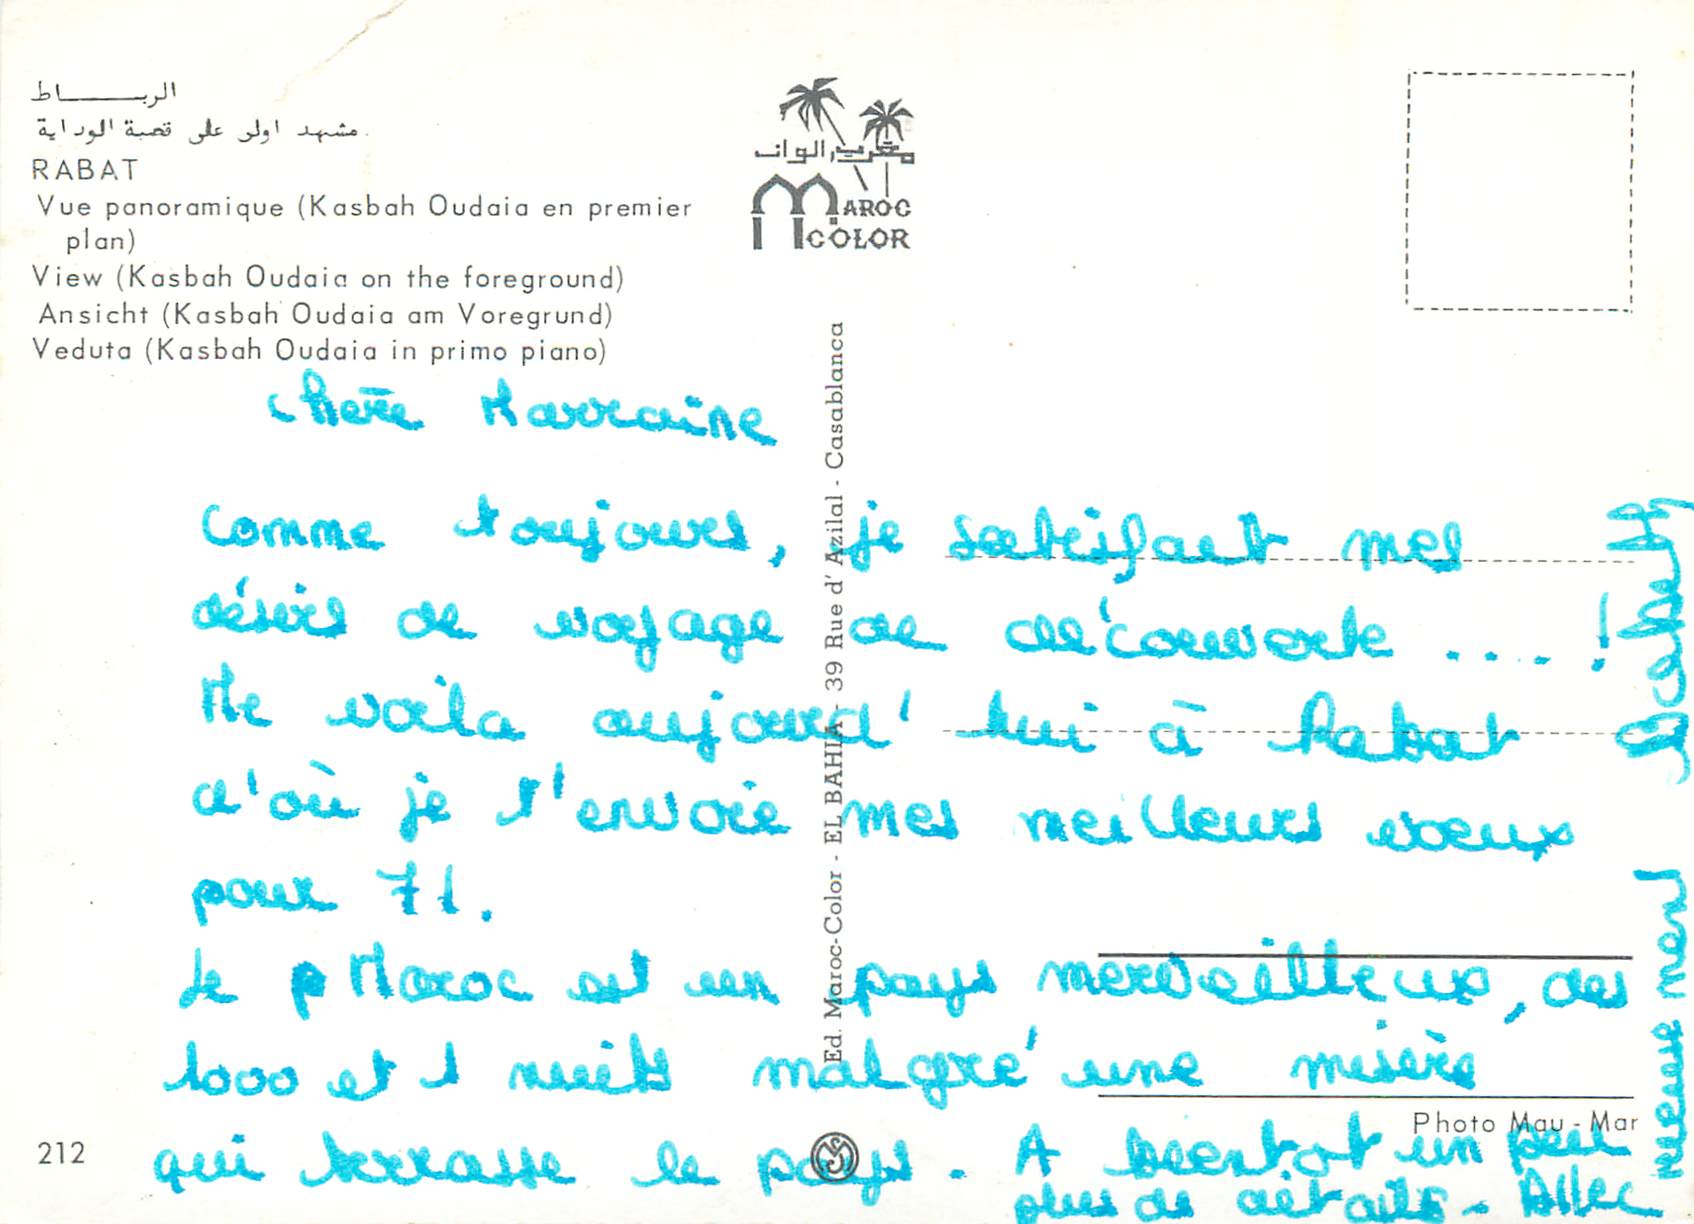 الربــــــاط
مشهد اولى على قصبة الوداية
RABAT
Vue panoramique (Kasbah Oudaia en premier
plan)
View (Kasbah Oudaia on the foreground)
Ansicht (Kasbah Oudaia am Voregrund)
Veduta (Kasbah Oudaia in primo piano)
MAROC
COLOR
Ed. Maroc-Color - EL BAHIA - 39 Rue d'Azilal - Casablanca
Chère Marraine
Comme toujours, je satisfait mes
désirs de voyage de découverte .... !
Me voila aujourd'hui à Rabat
d'où je t'envoie mes meilleurs voeux
pour 71.
Le Maroc est un pays merveilleux, des
1000 et 1 nuits malgré une misère
qui terrasse le pays. A bientot un peu
plus de détails. Allec
212
Photo Mau-Mar